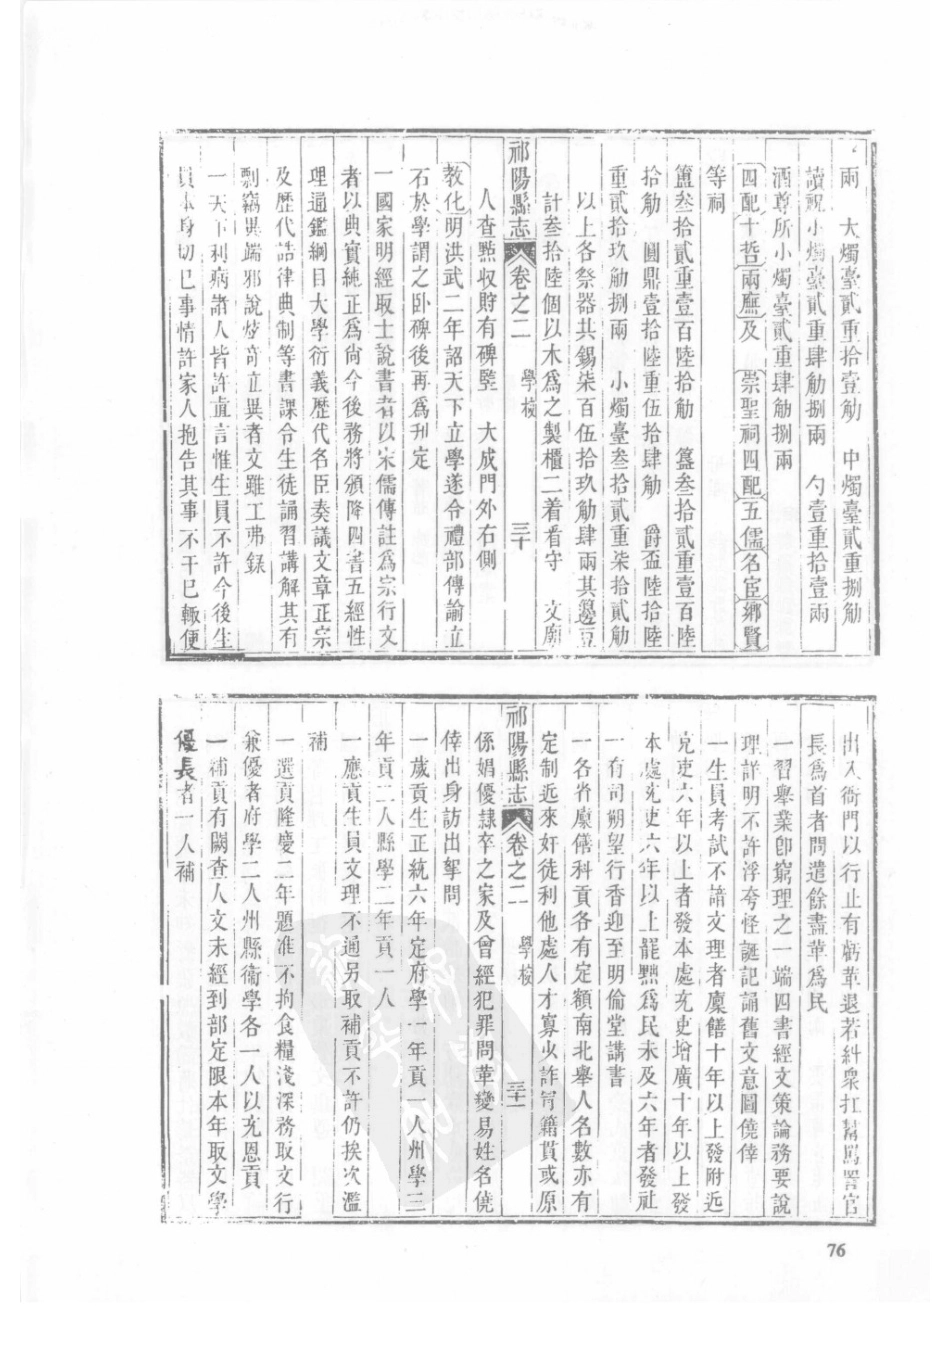 兩　大燭臺貳重拾壹觔　中燭臺貳重捌觔
讀祝小燭臺貳重肆觔捌兩　勺壹重拾壹兩
酒尊所小燭臺貳重肆觔捌兩
四配十哲兩廡及　崇聖祠四配五儒名宦鄉賢
等祠
簠叁拾貳重壹百陸拾觔　簋叁拾貳重壹百陸
拾觔　圓鼎壹拾陸重伍拾肆觔　爵盃陸拾陸
重貳拾玖觔捌兩　小燭臺叁拾貳重柒拾貳觔
以上各祭器共錫柒百伍拾玖觔肆兩其籩豆
計叁拾陸個以木爲之製櫃二着看守　文廟
祁陽縣志　卷之二　學校　三十
人查㸃収貯有碑竪　大成門外右側
教化明洪武二年詔天下立學遂令禮部傳諭立
石於學謂之卧碑後再爲刋定
一國家明經取士說書者以宋儒傳註爲宗行文
者以典實純正爲尙今後務將頒降四書五經性
理通鑑綱目大學衍義歷代名臣奏議文章正宗
及歷代誥律典制等書課令生徒誦習講解其有
剽竊異端邪說炫竒立異者文雖工弗錄
一天下利病諸人皆許直言惟生員不許今後生
員本身切已事情許家人抱告其事不干已輙便
出入衙門以行止有虧革退若糾衆扛幫罵詈官
長爲首者問遣餘盡革爲民
一習舉業卽窮理之一端四書經文策論務要說
理詳明不許浮夸怪誕記誦舊文意圖僥倖
一生員考試不諳文理者廩饍十年以上發附近
充吏六年以上者發本處充吏增廣十年以上發
本處充吏六年以上罷黜爲民未及六年者發社
一有司朔望行香迎至明倫堂講書
一各省廩饍科貢各有定額南北舉人名數亦有
定制近來奸徒利他處人才寡少詐冐籍貫或原
祁陽縣志　卷之二　學校　三十一
係娼優隷卒之家及曾經犯罪問革變易姓名僥
倖出身訪出拏問
一歲貢生正統六年定府學一年貢一人州學三
年貢二人縣學二年貢一人
一應貢生員文理不通另取補貢不許仍挨次濫
補
一選貢隆慶二年題准不拘食糧淺深務取文行
兼優者府學二人州縣衞學各一人以充恩貢
一補貢有闕查人文未經到部定限本年取文學
優長者一人補
76